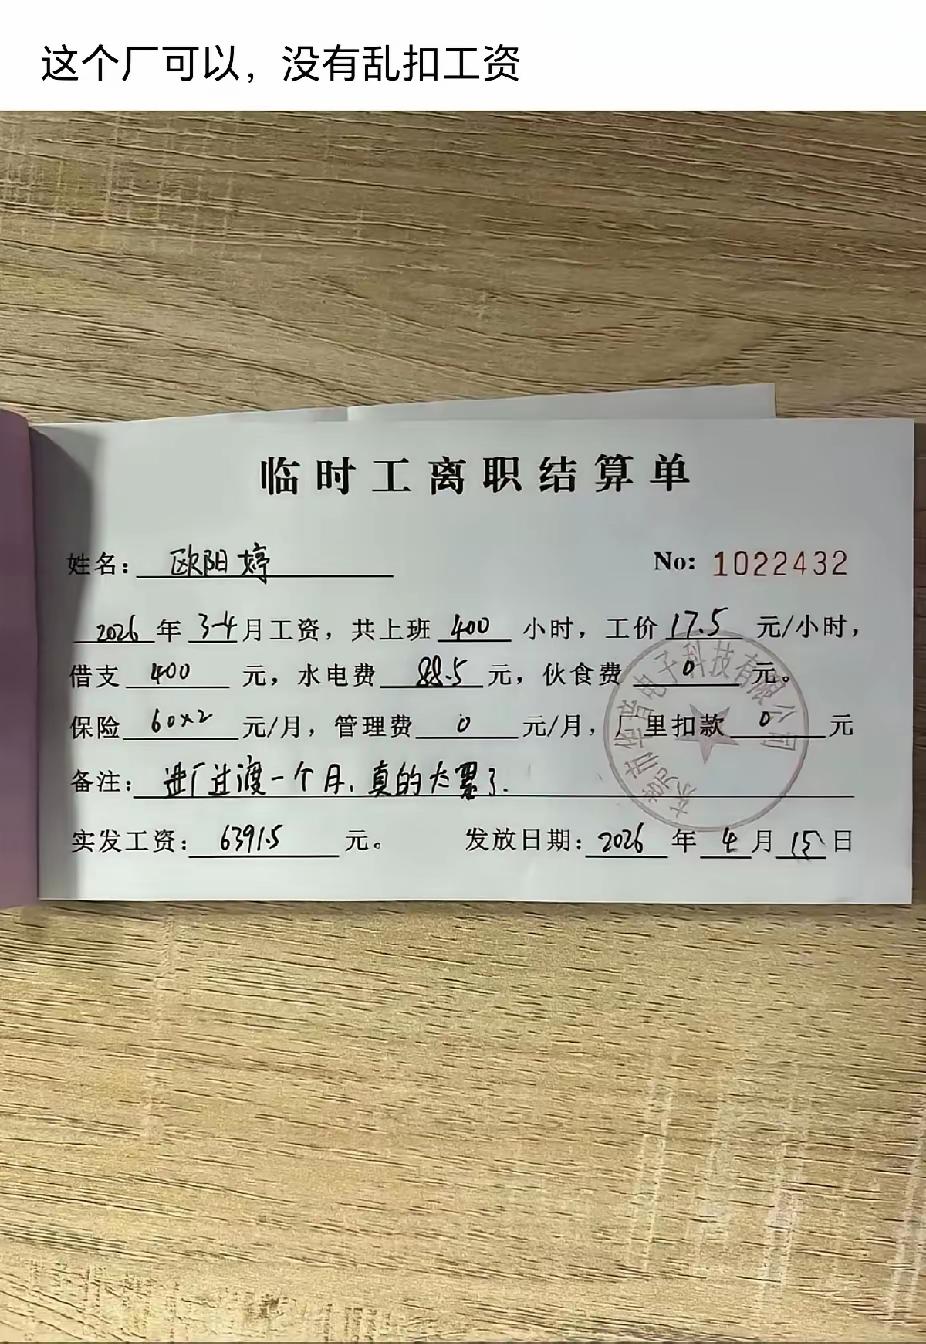 这个厂可以，没有乱扣工资
临时工离职结算单
姓名：欧阳婷 No: 1022432
2026年3-4月工资，共上班400小时，工价17.5元/小时，
借支400元，水电费88.5元，伙食费0元。
保险60×2元/月，管理费0元/月，厂里扣款0元
备注：进厂过渡一个月，真的太累了.
实发工资：6391.5元。 发放日期：2026年4月15日
电子科技有限公司